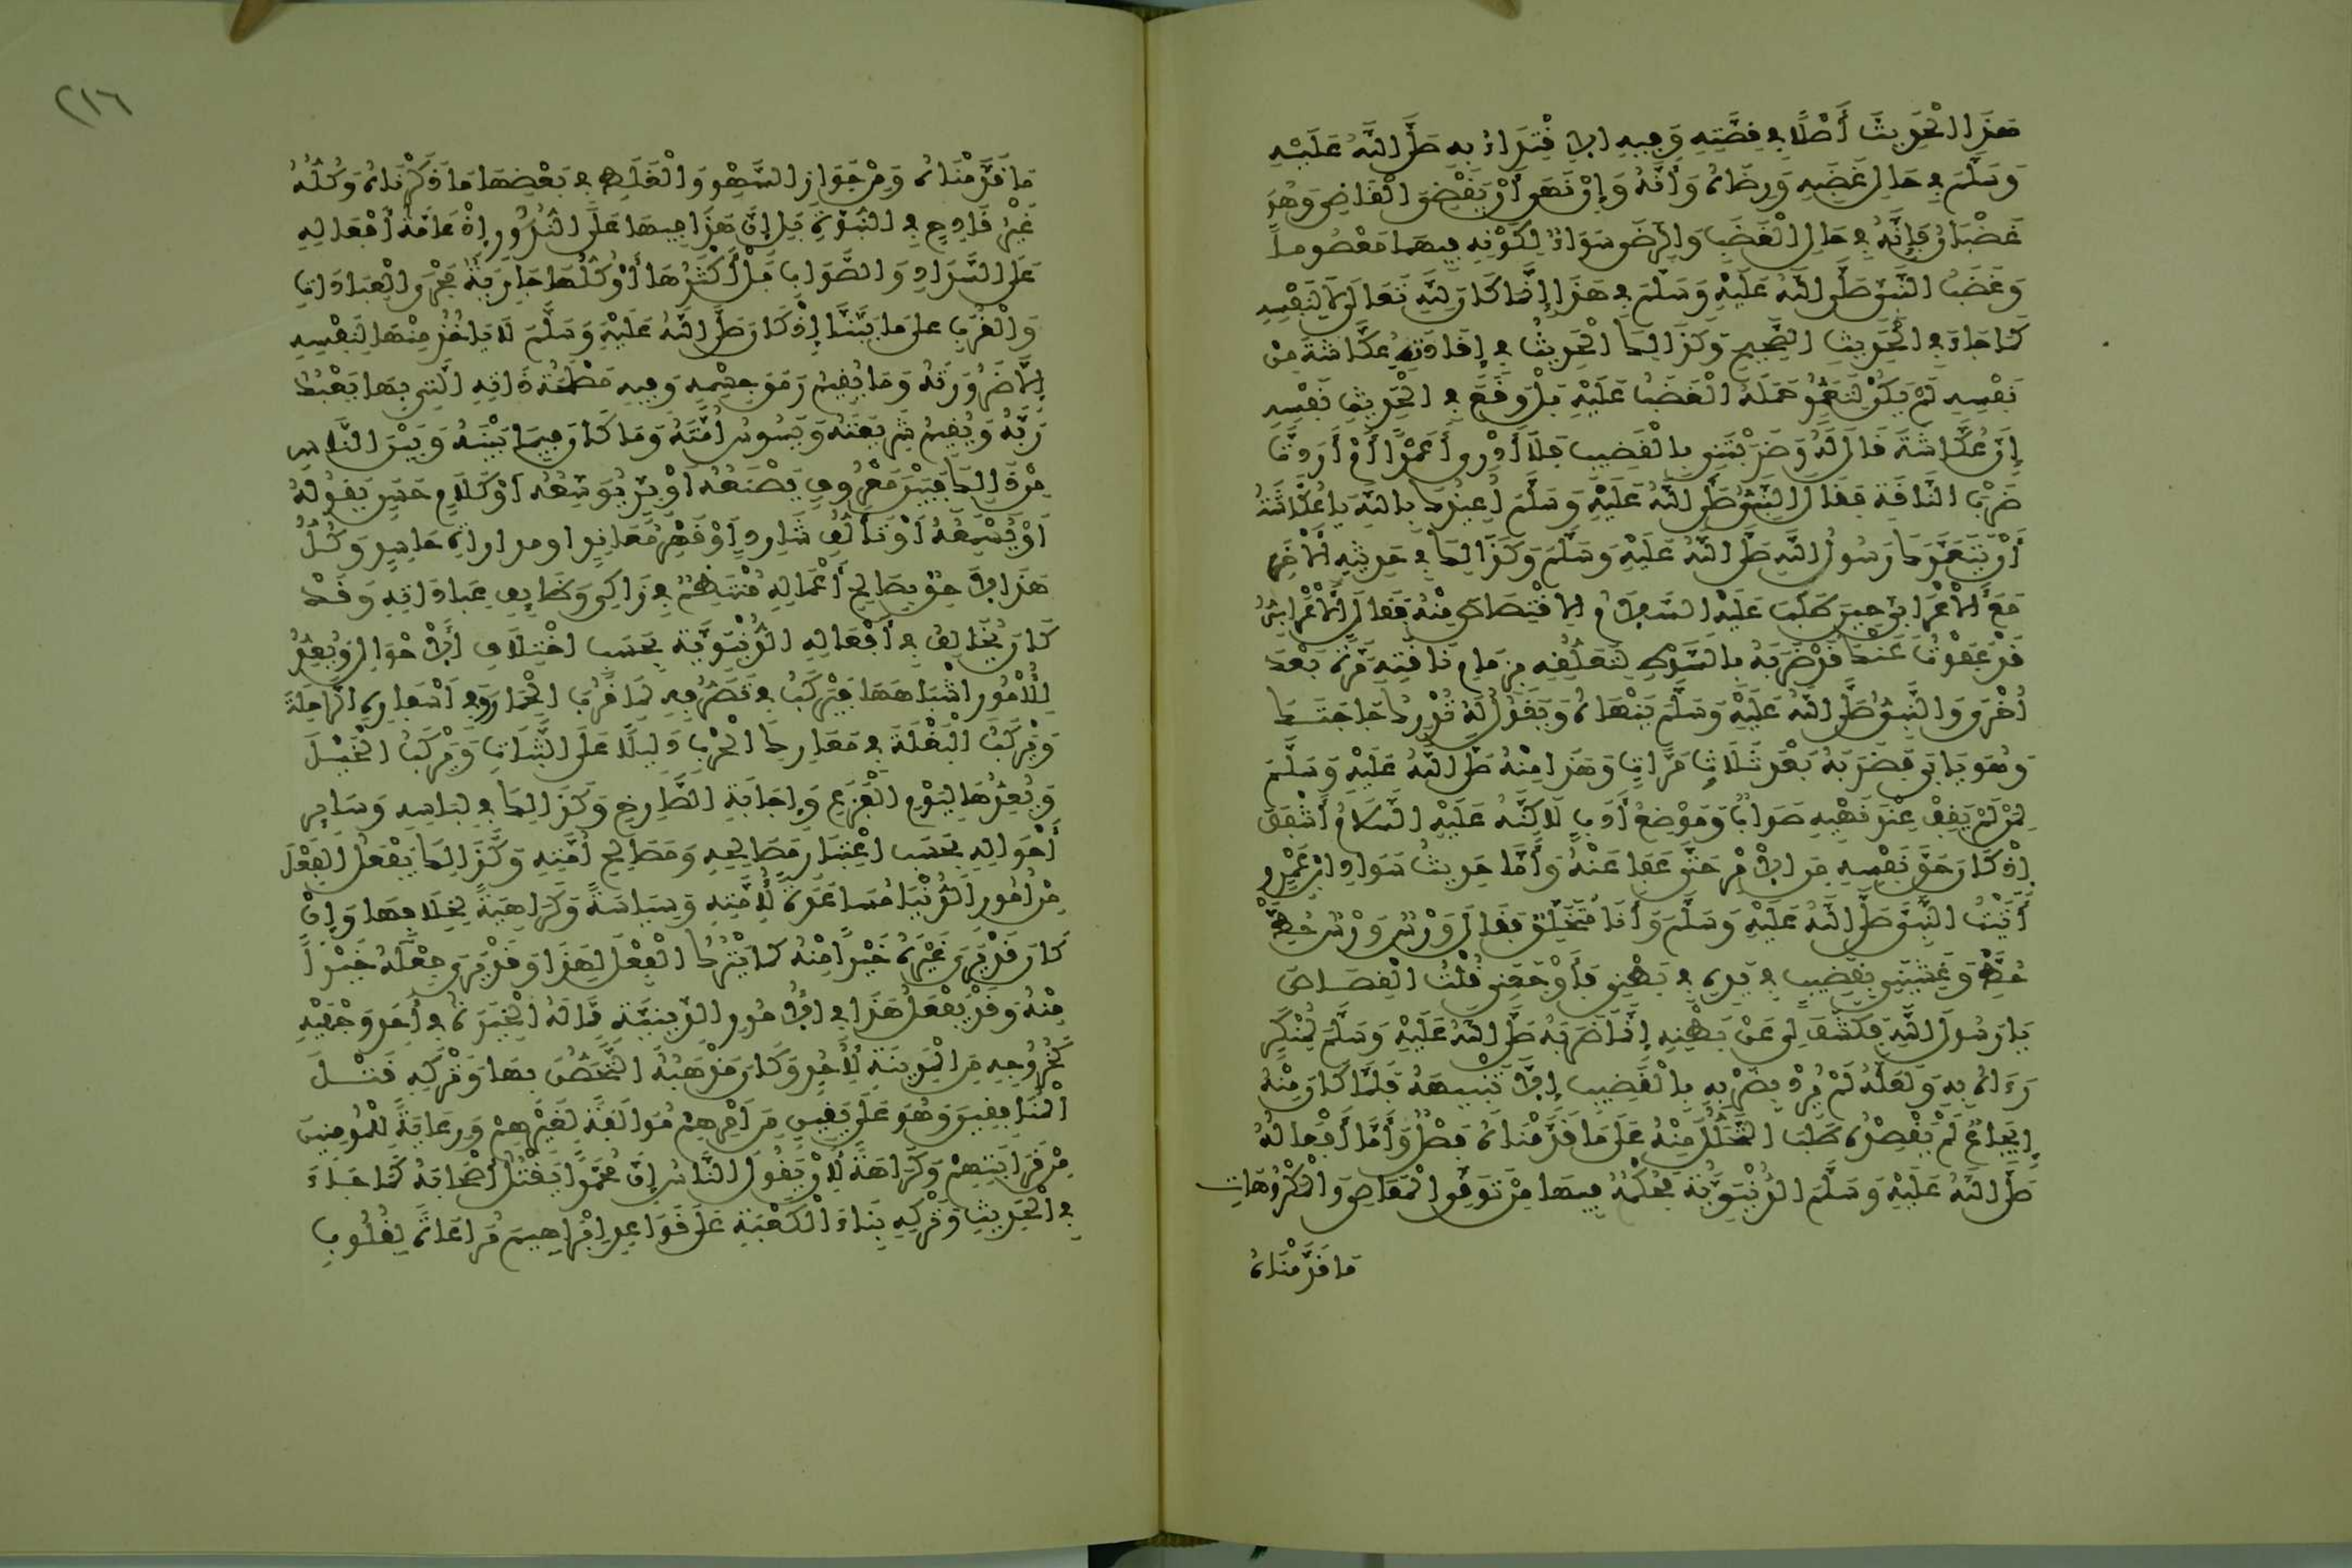 هَذَا الْحَدِيثَ أَصْلًا فِي قِصَّتِهِ وَفِيهِ الِاقْتِدَاءُ بِهِ صَلَّى اللَّهُ عَلَيْهِ
وَسَلَّمَ فِي حَالِ غَضَبِهِ وَرِضَاهُ وَأَنَّهُ وَإِنْ نَهَى أَنْ يَقْضِيَ الْقَاضِي وَهُوَ
غَضْبَانُ فَإِنَّهُ فِي حَالِ الْغَضَبِ وَالرِّضَى سَوَاءٌ لِكَوْنِهِ فِيهِمَا مَعْصُومًا
وَغَضَبُ النَّبِيِّ صَلَّى اللَّهُ عَلَيْهِ وَسَلَّمَ فِي هَذَا إِنَّمَا كَانَ لِلَّهِ تَعَالَى لَا لِنَفْسِهِ
كَمَا جَاءَ فِي الْحَدِيثِ الصَّحِيحِ وَكَذَلِكَ الْحَدِيثُ فِي إِقَادَتِهِ عُكَّاشَةَ مِنْ
نَفْسِهِ لَمْ يَكُنْ لِتَعَمُّدٍ حَمَلَهُ الْغَضَبُ عَلَيْهِ بَلْ وَقَعَ فِي الْحَدِيثِ نَفْسِهِ
إِنَّ عُكَّاشَةَ قَالَ لَهُ وَضَرَبْتَنِي بِالْقَضِيبِ فَلَا أَدْرِي أَعَمْدًا أَمْ أَرَدْتَ
ضَرْبَ النَّاقَةِ فَقَالَ النَّبِيُّ صَلَّى اللَّهُ عَلَيْهِ وَسَلَّمَ أُعِيذُكَ بِاللَّهِ يَا عُكَّاشَةُ
أَنْ يَتَعَمَّدَكَ رَسُولُ اللَّهِ صَلَّى اللَّهُ عَلَيْهِ وَسَلَّمَ وَكَذَلِكَ فِي حَدِيثِهِ الْآخَرِ
مَعَ الْأَعْرَابِيِّ حِينَ طَلَبَ عَلَيْهِ السَّلَامُ الِاقْتِصَاصَ مِنْهُ فَقَالَ الْأَعْرَابِيُّ
قَدْ عَفَوْتُ عَنْكَ قَدْ ضَرَبَهُ بِالسَّوْطِ لِتَعَلُّقِهِ بِزِمَامِ نَاقَتِهِ مَرَّةً بَعْدَ
أُخْرَى وَالنَّبِيُّ صَلَّى اللَّهُ عَلَيْهِ وَسَلَّمَ يَنْهَاهُ وَيَقُولُ لَهُ تُدْرِكُ حَاجَتَكَ
وَهُوَ يَأْبَى فَضَرَبَهُ بَعْدَ ثَلَاثِ مَرَّاتٍ وَهَذَا مِنْهُ صَلَّى اللَّهُ عَلَيْهِ وَسَلَّمَ
لِمَنْ لَمْ يَقِفْ عِنْدَ نَهْيِهِ صَوَابٌ وَمَوْضِعُ أَدَبٍ لَاكِنَّهُ عَلَيْهِ السَّلَامُ أَشْفَقَ
إِذْ كَانَ حَقَّ نَفْسِهِ مِنَ الْأَمْرِ حَتَّى عَفَا عَنْهُ وَأَمَّا حَدِيثُ سَوَادِ ابْنِ عَمْرٍو
أَتَيْتُ النَّبِيَّ صَلَّى اللَّهُ عَلَيْهِ وَسَلَّمَ وَأَنَا مُتَخَلِّقٌ فَقَالَ وَرْسٌ وَرْسٌ حُطَّ
حُطَّ وَغَشِيَنِي بِقَضِيبٍ فِي يَدِهِ فِي بَطْنِي فَأَوْجَعَنِي قُلْتُ الْقِصَاصَ
يَا رَسُولَ اللَّهِ فَكَشَفَ لِي عَنْ بَطْنِهِ إِنَّمَا ضَرَبَهُ صَلَّى اللَّهُ عَلَيْهِ وَسَلَّمَ لِمُنْكَرٍ
رَءَاهُ بِهِ وَلَعَلَّهُ لَمْ يُرِدْ بِضَرْبِهِ بِالْقَضِيبِ إِلَّا تَنْبِيهَهُ فَلَمَّا كَانَ مِنْهُ
إِيجَاعٌ لَمْ يَقْصِدْهُ طَلَبَ التَّحَلُّلَ مِنْهُ عَلَى مَا قَدَّمْنَاهُ فَصْلٌ وَأَمَّا أَفْعَالُهُ
صَلَّى اللَّهُ عَلَيْهِ وَسَلَّمَ الدُّنْيَوِيَّةُ فَحُكْمُهُ فِيهَا مِنْ تَوَقِّي الْمَعَاصِي وَالْمَكْرُوهَاتِ
مَا قَدَّمْنَاهُ
٢١٦
مَا قَدَّمْنَاهُ وَمِنْ جَوَازِ السَّهْوِ وَالْغَلَطِ فِي بَعْضِهَا مَا ذَكَرْنَاهُ وَكُلُّهُ
غَيْرُ قَادِحٍ فِي النُّبُوَّةِ بَلْ إِنَّ هَذَا فِيهَا عَلَى النُّدُورِ إِذْ عَامَّةُ أَفْعَالِهِ
عَلَى السَّدَادِ وَالصَّوَابِ بَلْ أَكْثَرُهَا أَوْ كُلُّهَا جَارِيَةٌ مَجْرَى الْعِبَادَاتِ
وَالْقُرَبِ على مَا بَيَّنَّا إِذْ كَانَ صَلَّى اللَّهُ عَلَيْهِ وَسَلَّمَ لَا يَأْخُذُ مِنْهَا لِنَفْسِهِ
إِلَّا ضَرُورَتَهُ وَمَا يُقِيمُ رَمَقَ جِسْمِهِ وَفِيهِ مَصْلَحَةُ ذَاتِهِ الَّتِي بِهَا يَعْبُدُ
رَبَّهُ وَيُقِيمُ شَرِيعَتَهُ وَيَسُوسُ أُمَّتَهُ وَمَا كَانَ فِيمَا بَيْنَهُ وَبَيْنَ النَّاسِ
مِنْ ذَلِكَ فَبَيْنَ مَعْرُوفٍ يَصْنَعُهُ أَوْ بِرٍّ يُوَسِّعُهُ أَوْ كَلَامٍ حَسَنٍ يَقُولُهُ
أَوْ يُسْمِعُهُ أَوْ تَأَلُّفِ شَارِدٍ أَوْ قَهْرِ مُعَانِدٍ او مداراةِ حَاسِدٍ وَكُلُّ
هَذَا لَاحِقٌ بِصَالِحِ أَعْمَالِهِ مُنْتَظِمٌ فِي زَاكِي وَظَايِفِ عِبَادَاتِهِ وَقَدْ
كَانَ يُخَالِفُ فِي أَفْعَالِهِ الدُّنْيَوِيَّةِ بِحَسَبِ اخْتِلَافِ الْأَحْوَالِ وَيُعِدُّ
لِلْأُمُورِ اشْبَاهَهَا فَيَرْكَبُ فِي تَصَرُّفِهِ لِمَا قَرُبَ الْحِمَارَ وَفِي أَسْفَارِهِ الرَّاحِلَةَ
وَيَرْكَبُ الْبَغْلَةَ فِي مَعَارِكِ الْحَرْبِ دَلِيلًا عَلَى الثَّبَاتِ وَيَرْكَبُ الْخَيْلَ
وَيُعِدُّهَا لِيَوْمِ الْفَزَعِ وَإِجَابَةِ الصَّارِخِ وَكَذَلِكَ فِي لِبَاسِهِ وَسَايِرِ
أَحْوَالِهِ بِحَسَبِ اعْتِبَارِ مَصَالِحِهِ وَمَصَالِحِ أُمَّتِهِ وَكَذَلِكَ يَفْعَلُ الْفِعْلَ
مِنْ أُمُورِ الدُّنْيَا مُسَاعَدَةً لِأُمَّتِهِ وَسِيَاسَةً وَكَرَاهِيَةً لِخِلَافِهَا وَإِنْ
كَانَ قَدْ يَرَى غَيْرَهُ خَيْرًا مِنْهُ كَمَا يَتْرُكُ الْفِعْلَ لِهَذَا وَقَدْ يَرَى فِعْلَهُ خَيْرًا
مِنْهُ وَقَدْ يَفْعَلُ هَذَا فِي الْأُمُورِ الدِّينِيَّةِ مِمَّا لَهُ الْخِيَرَةُ فِي أَحَدِ وَجْهَيْهِ
كَخُرُوجِهِ مِنَ الْمَدِينَةِ لِأُحُدٍ وَكَانَ مَذْهَبُهُ التَّحَصُّنَ بِهَا وَتَرْكِهِ قَتْلَ
الْمُنَافِقِينَ وَهُوَ عَلَى يَقِينٍ مِنَ امْرِهِمْ مُوَالَفَةً لِغَيْرِهِمْ وَرِعَايَةً لِلْمُومِنِينَ
مِنْ قَرَابَتِهِمْ وَكَرَاهَةً لِأَنْ يَقُولَ النَّاسُ إِنَّ مُحَمَّدًا يَقْتُلُ أَصْحَابَهُ كَمَا جَاءَ
فِي الْحَدِيثِ وَتَرْكِهِ بِنَاءَ الْكَعْبَةِ عَلَى قَوَاعِدِ إِبْرَاهِيمَ مُرَاعَاةً لِقُلُوبِ